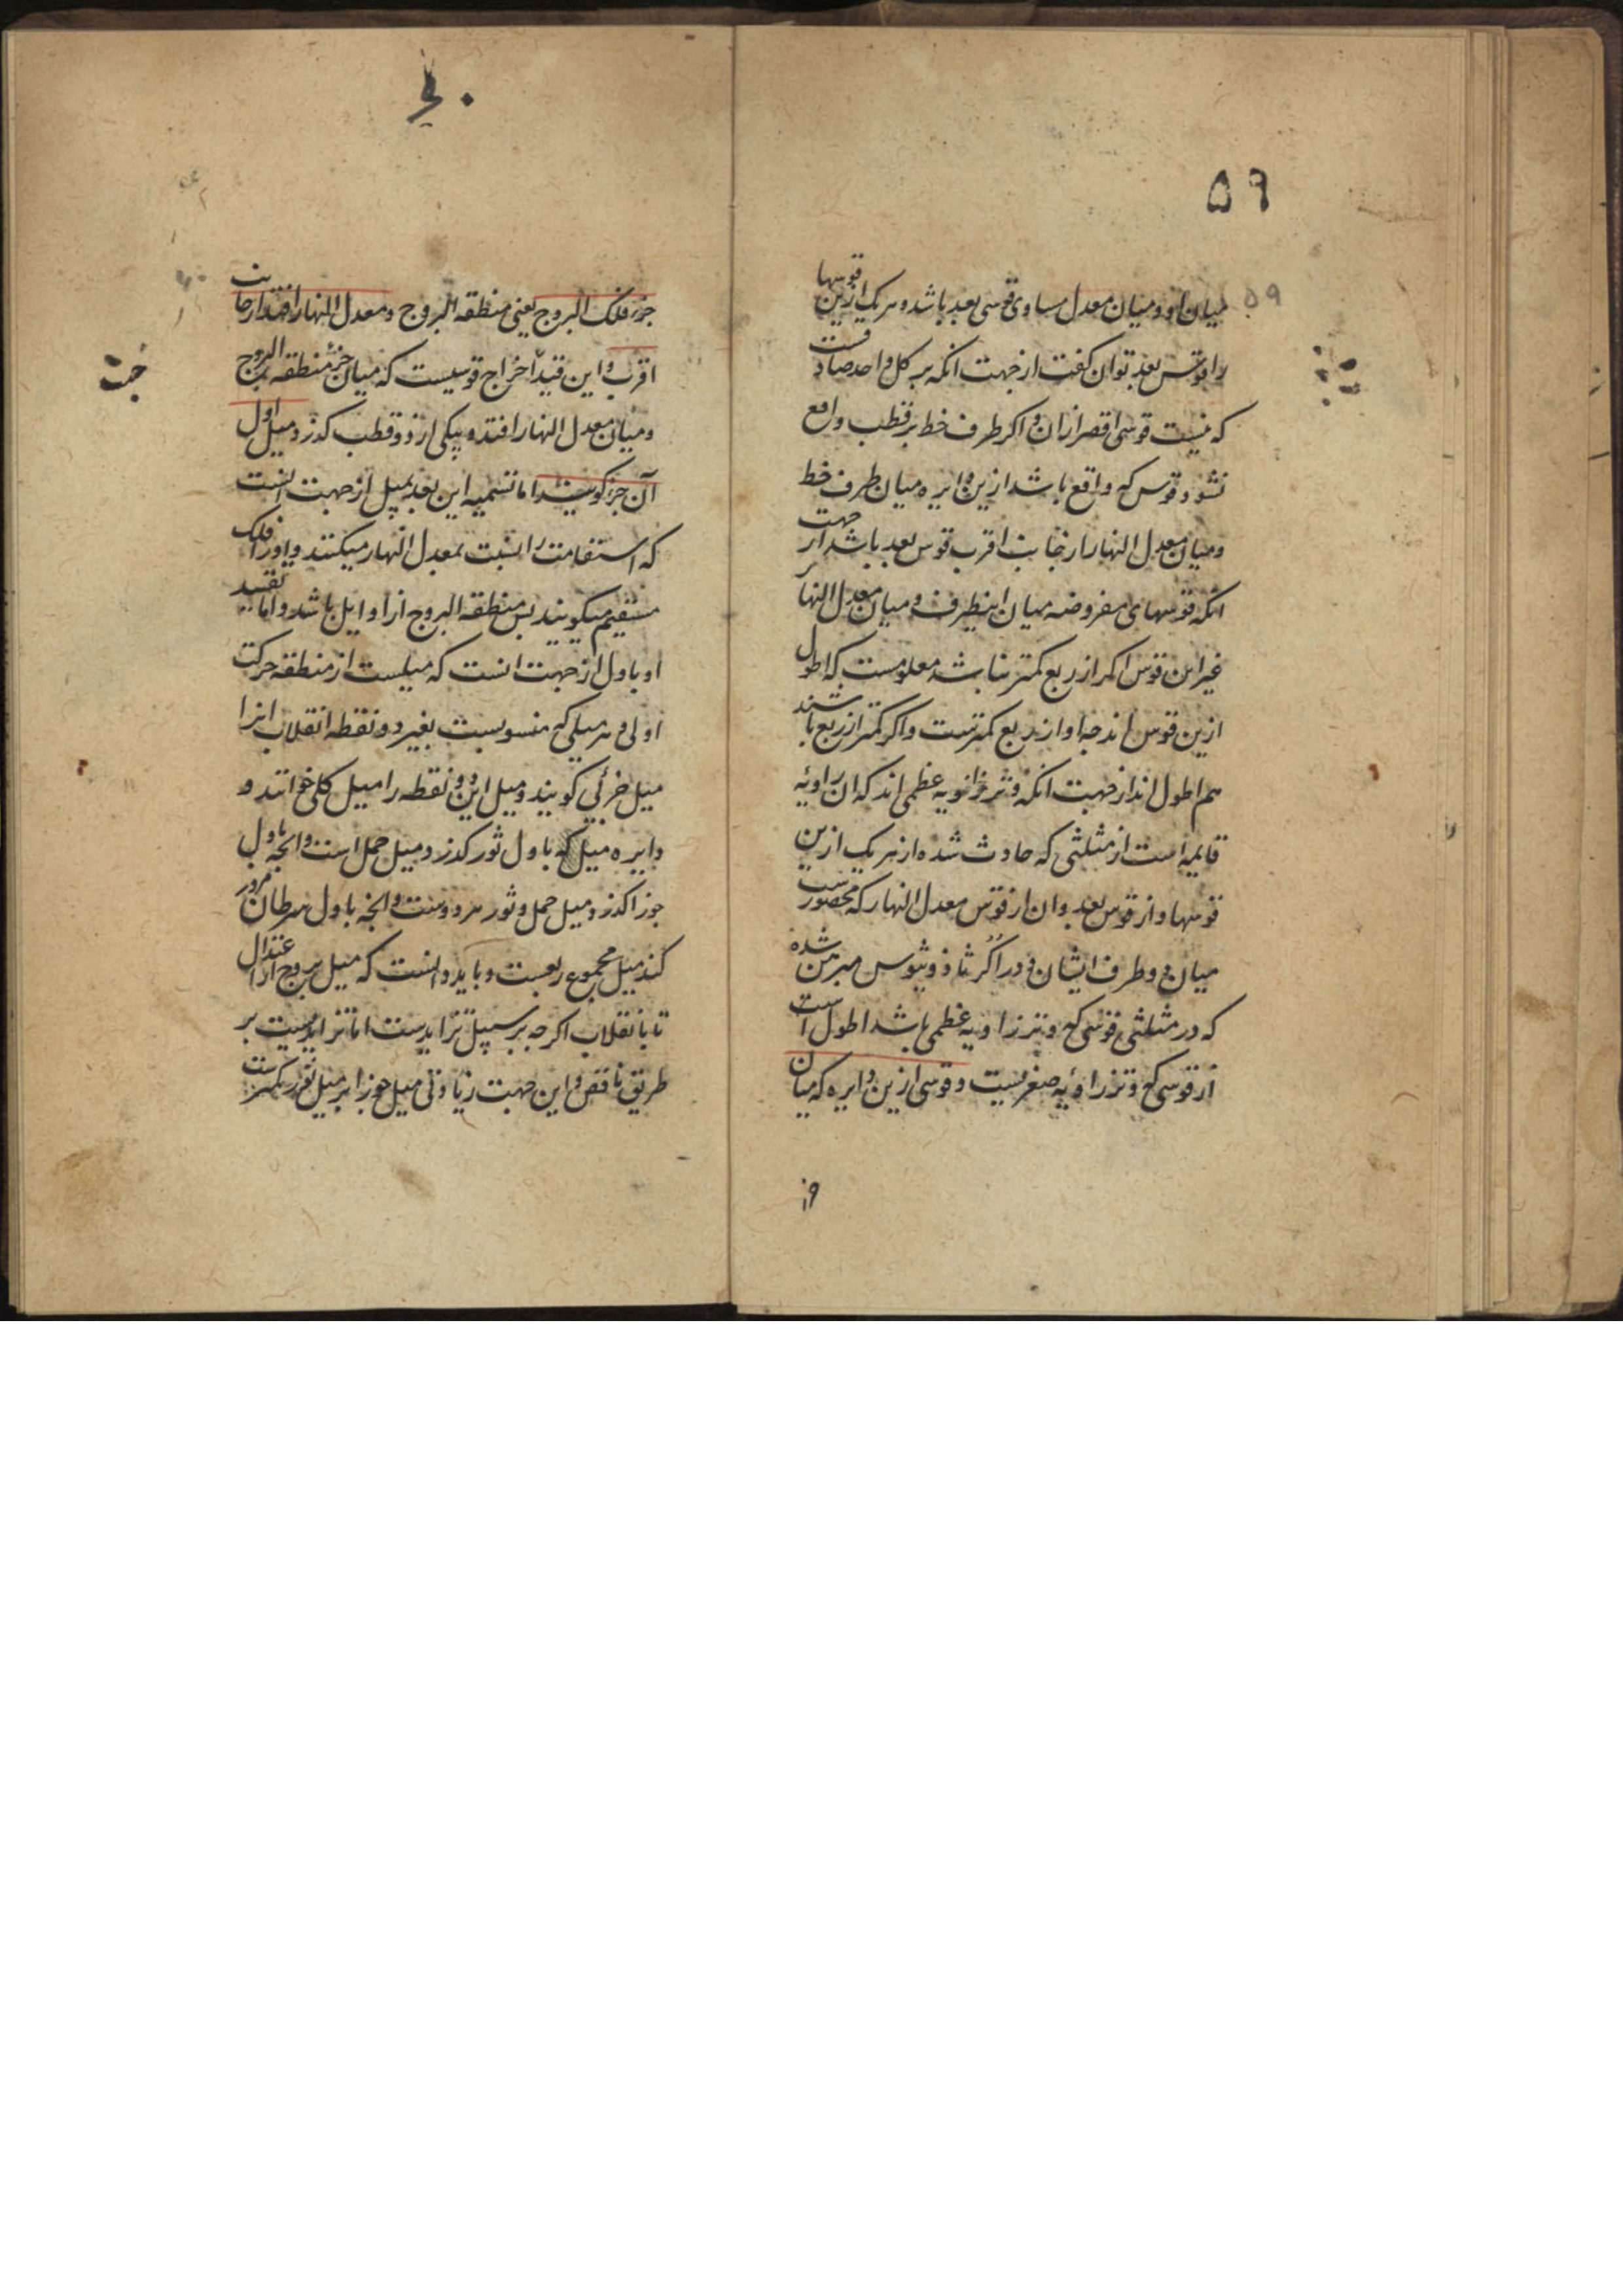 ۵۹
۵۹
میان او و میان معدل مساوی قوسی بعد باشد و هر یک ازین قوسها
را قوس بعد توان کفت از جهت انکه بر کل واحد صادقست
که نیست قوسی اقصر از ان و اکر طرف خط بر قطب واقع
نشود قوس که واقع باشد ازین دایره میان طرف خط
و میان معدل النهار از جانب اقرب قوس بعد باشد از جهت
انکه قوسهای مفروضه میان اینطرف و میان معدل النهار
غیر این قوس اکر از ربع کمتر نباشد معلومست که اطول
ازین قوس اند چه او از ربع کمترست و اکر کمتر از ربع باشند
هم اطول اند از جهت انکه وتر زاویه عظمی اند که ان زاویه
قایمه است از مثلثی که حادث شده از هر یک ازین
قوسها و از قوس بعد و ان از قوس معدل النهار که محصورست
میان دو طرف ایشان و در اکر ثاوذوسیوس مبرهن شده
که در مثلثی قوسی که وتر زاویه عظمی باشد اطول است
از قوسی که وتر زاویه صغریست و قوسی ازین دایره که میان
جزء فلک البروج یعنی منطقه البروج و معدل النهار افتد از جانب
اقرب و این قید اخراج قوسیست که میان جزء منطقه البروج
و میان معدل النهار افتد و بیکی از دو قطب کذرد میل اول
آن جزء کویند اما تسمیه این بعد بمیل از جهت انست
که استقامت را نسبت بمعدل النهار میکنند و او را فلک
مستقیم میکویند پس منطقه البروج ازاو ایل باشد و اما تقیید
او باول از جهت انست که میلست از منطقه حرکت
اولی و هر میلی که منسوبست بغیر دو نقطه انقلاب انرا
میل جزئی کویند و میل این دو نقطه را میل کلی خوانند و
دایره میل که باول ثور کذرد میل حمل است و انچه باول
جوزا کذرد میل حمل و ثور هر دوست و انچه باول سرطان مرور
کند میل مجموع ربعست و باید دانست که میل بروج از اعتدال
تا بانقلاب اکرچه بر سبیل تزایدست اما تزایدیست بر
طریق تناقص و این جهت زیادتی میل جوزا بر میل ثور کمترست